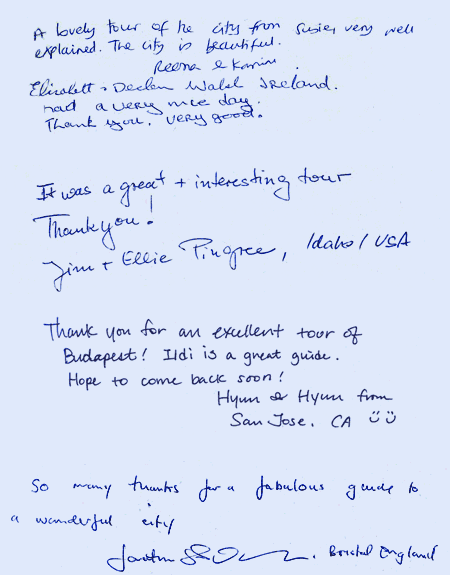 A lovely tour of the city from Susie, very well
explained. The city is beautiful.
Reena & Karim
Elizabeth + Declan Walsh Ireland.
had a very nice day.
Thank you. very good.
It was a great + interesting tour
Thank you!
Jim + Ellie Pingree, Idaho / USA
Thank you for an excellent tour of
Budapest! Ildi is a great guide.
Hope to come back soon!
Hyun & Hyun from
San Jose, CA
So many thanks for a fabulous guide to
a wonderful city
Bristol England